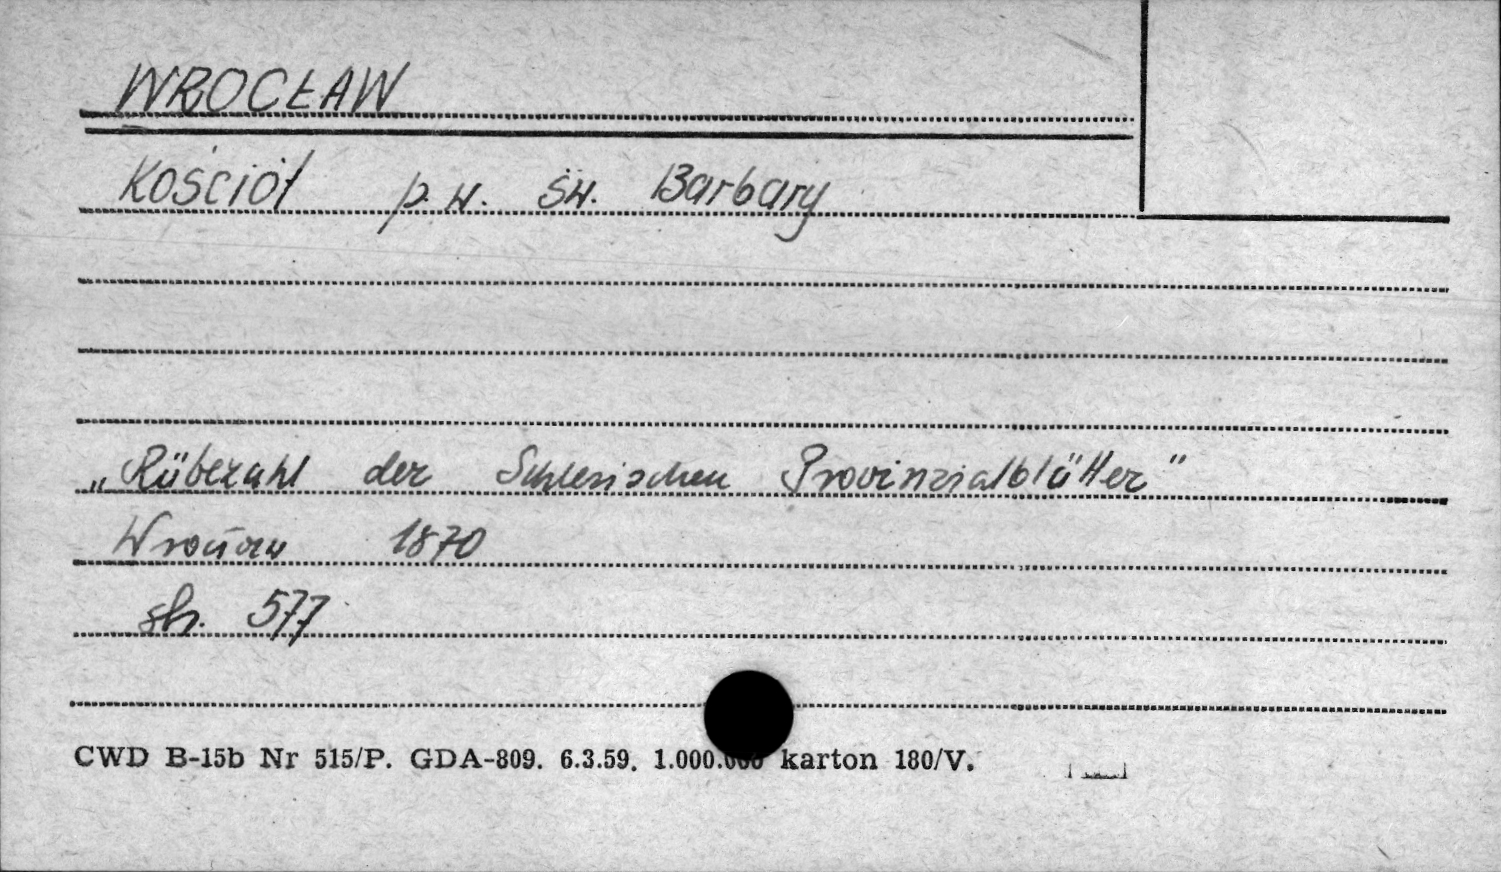 WROCŁAW
Kościół p.w. św. Barbary
„Rübezahl der Schlesischen Provinzialblätter"
Wrocław 1870
str. 577
CWD B-15b Nr 515/P. GDA-809. 6.3.59. 1.000.000 karton 180/V.